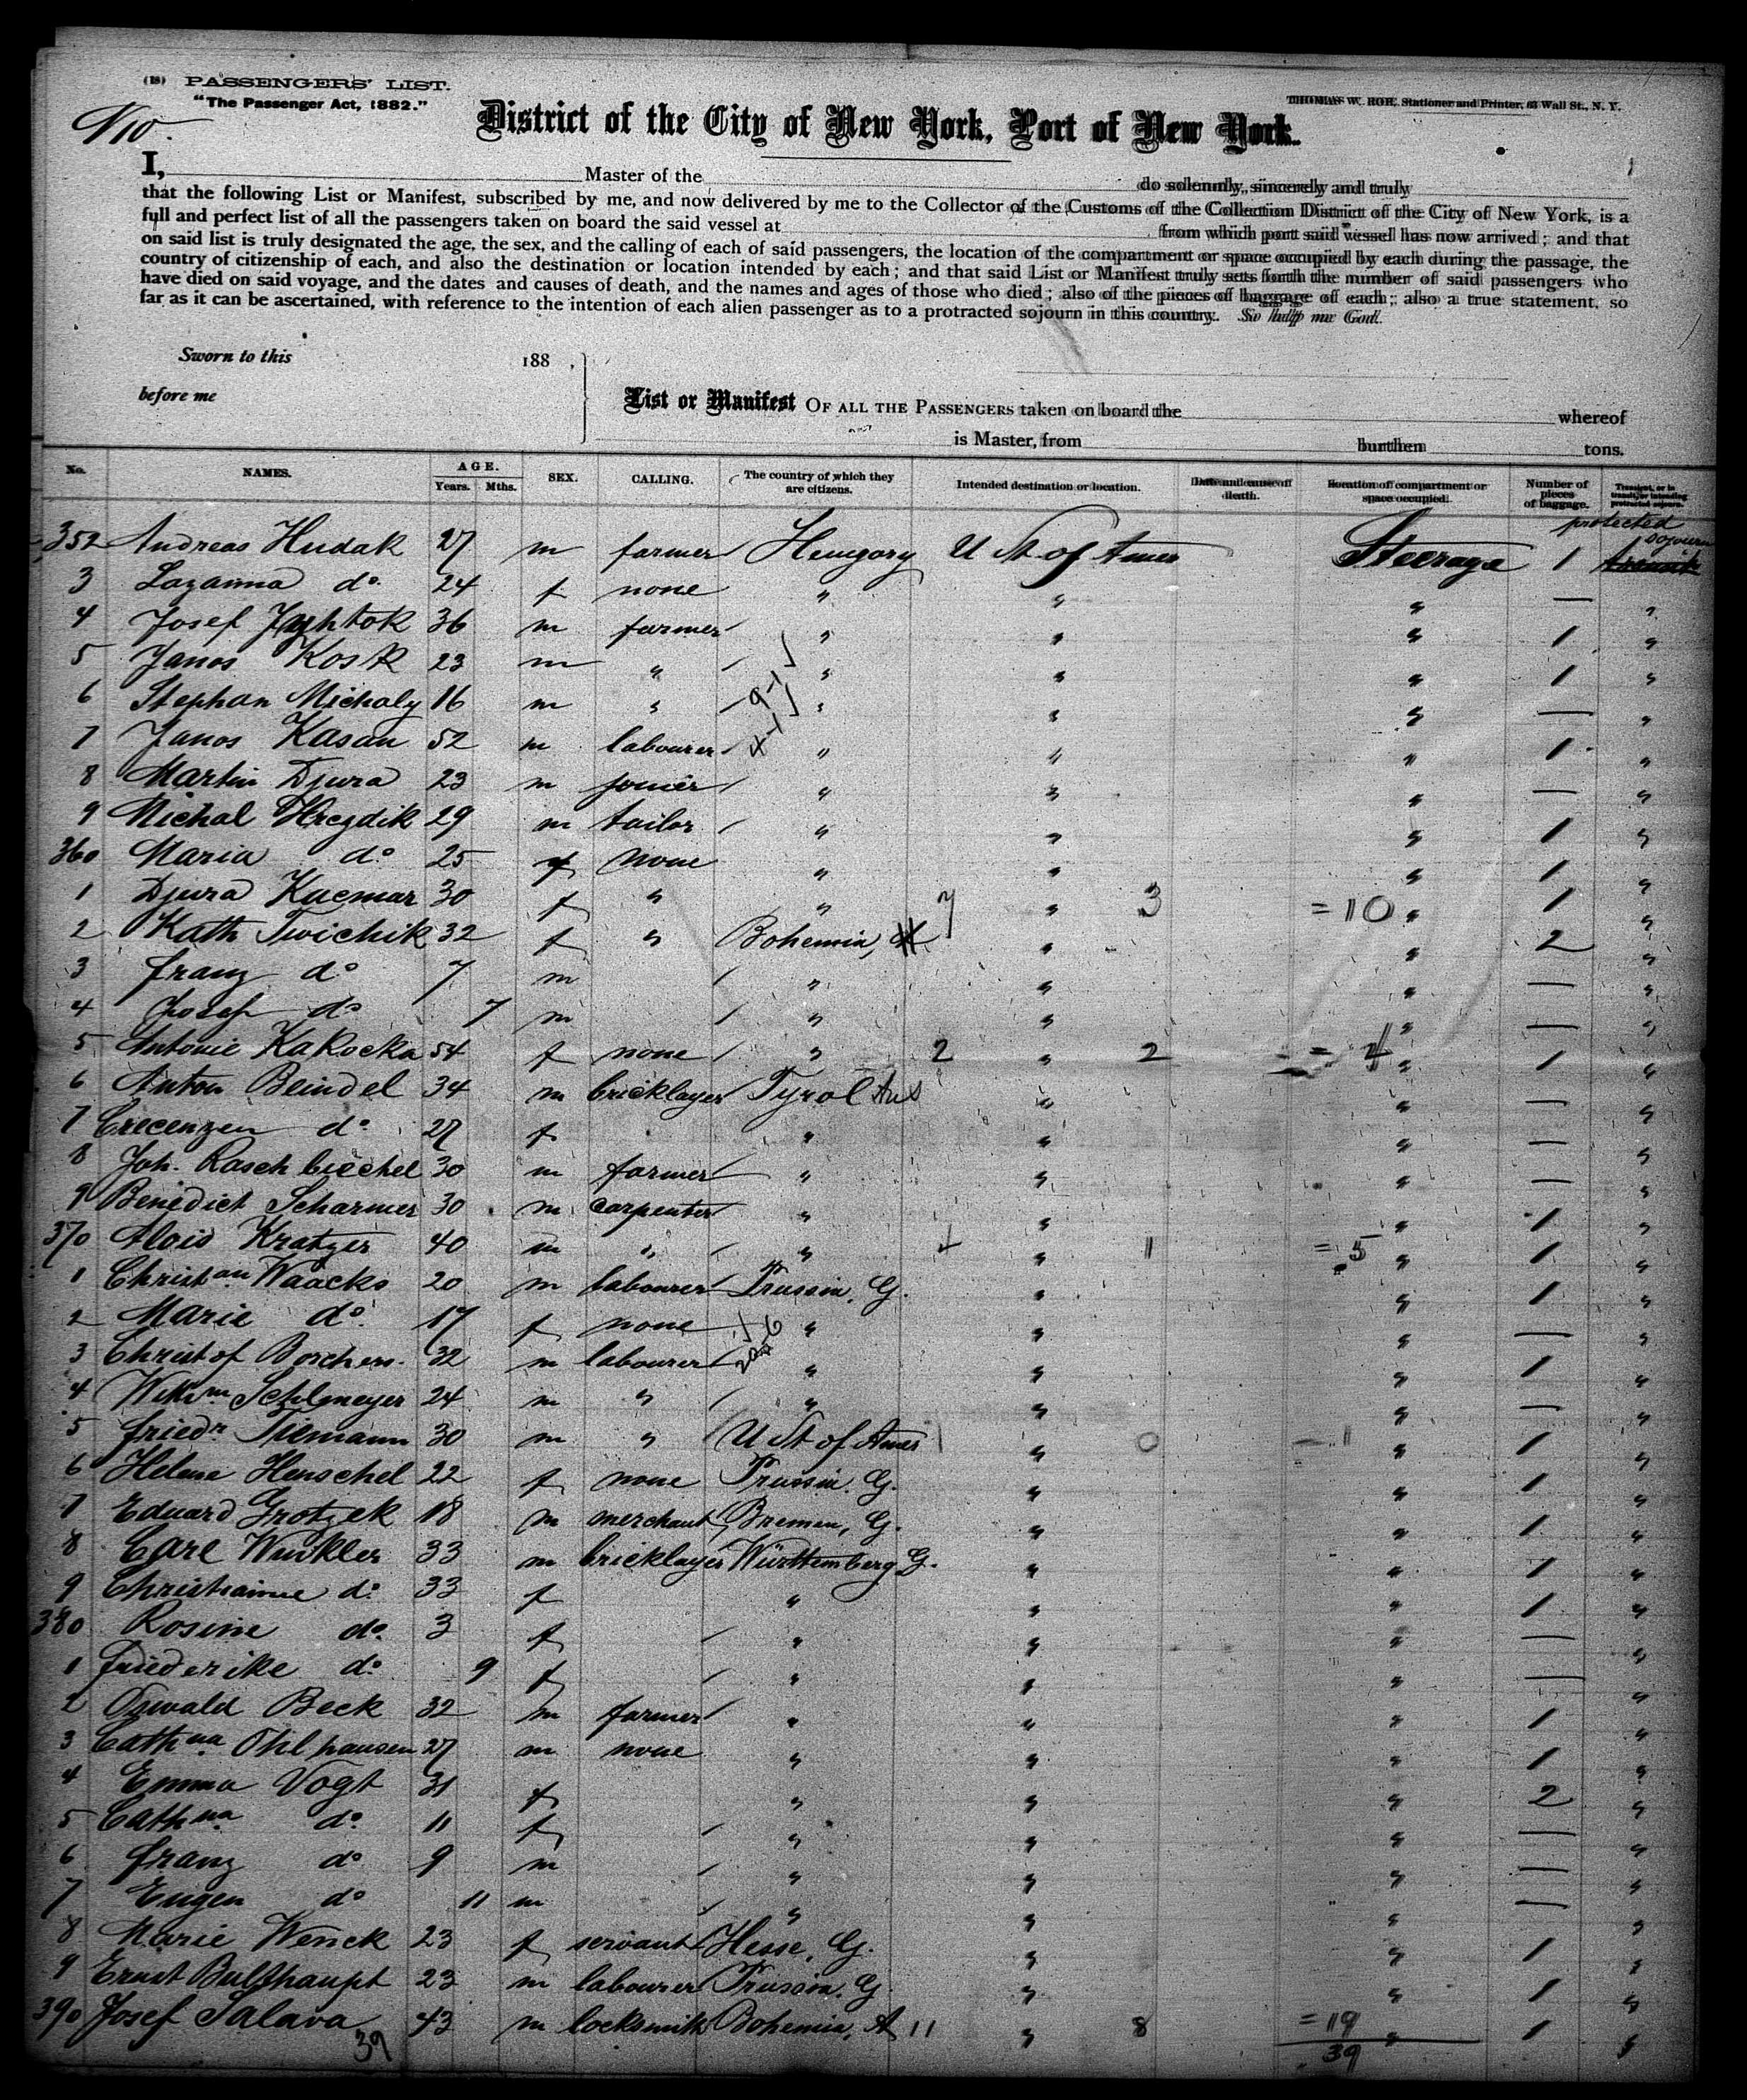 (18) PASSENGERS' LIST.
"The Passenger Act, 1882."
THOMAS W. ROE, Stationer and Printer, 63 Wall St., N. Y.
No 10.
District of the City of New York, Port of New York.
I, Master of the do solemnly, sincerely and truly
that the following List or Manifest, subscribed by me, and now delivered by me to the Collector of the Customs of the Collection District of the City of New York, is a
full and perfect list of all the passengers taken on board the said vessel at from which port said vessel has now arrived; and that
on said list is truly designated the age, the sex, and the calling of each of said passengers, the location of the compartment or space occupied by each during the passage, the
country of citizenship of each, and also the destination or location intended by each; and that said List or Manifest truly sets forth the number of said passengers who
have died on said voyage, and the dates and causes of death, and the names and ages of those who died; also of the pieces of baggage of each; also a true statement, so
far as it can be ascertained, with reference to the intention of each alien passenger as to a protracted sojourn in this country. So help me God.
Sworn to this 188 ,
before me
List or Manifest OF ALL THE PASSENGERS taken on board the whereof
is Master, from burthen tons.
No. NAMES. AGE. Years. Mths. SEX. CALLING. The country of which they are citizens. Intended destination or location. Date and cause of death. Location of compartment or space occupied. Number of pieces of baggage. Transient, or in transit, or intending protracted sojourn.
352 Andreas Hudak 27 m farmer Hungary U St of Amer Steerage 1 protected sojourn
3 Lazanna do 24 f none " " " — "
4 Josef 36 m farmer " " " 1 "
5 Janos Kosk 23 m " " " " 1 "
6 Stephan Michaly 16 m " " " " — "
7 Janos Kasan 52 m labourer " " " 1 "
8 Martin Djura 23 m joiner " " " — "
9 Michal Hregdik 29 m tailor " " " 1 "
360 Maria do 25 f none " " " 1 "
1 Djura Kucmar 30 f " " 7 " 3 = 10 " 1 "
2 Kath Twichik 32 f " Bohemia, " " 2 "
3 Franz do 7 m " " " — "
4 Josef do 7 m " " " — "
5 Antonie Kakocka 54 f none " 2 " 2 = 4 " 1 "
6 Anton Beindel 34 m bricklayer Tyrol Aus " " — "
7 Crecenzen do 27 f " " " — "
8 Joh. Raschbiechel 30 m farmer " " " — "
9 Benedict Scharmer 30 m carpenter " " " 1 "
370 Alois Kratzer 40 m " " 4 " 1 = 5 " 1 "
1 Christian Waacks 20 m labourer Prussia, G. " " 1 "
2 Marie do 17 f none " " " — "
3 Christof Borchers 32 m labourer " " " 1 "
4 Wilhm Sehlmeyer 24 m " " " " — "
5 Friedr Tiemann 30 m " U St of Amer 1 " 0 — 1 " 1 "
6 Helene Henschel 22 f none Prussia. G. " " 1 "
7 Eduard Grotzek 18 m merchant Bremen, G. " " 1 "
8 Carl Winkler 33 m bricklayer Württemberg G. " " 1 "
9 Christianne do 33 f " " " 1 "
380 Rosine do 3 f " " " — "
1 Friederike do 9 f " " " — "
2 Oswald Beck 32 m farmer " " " 1 "
3 Cathna Ohlhausen 27 m none " " " 1 "
4 Emma Vogt 31 f " " " 2 "
5 Cathna do 11 f " " " — "
6 Franz do 9 m " " " — "
7 Eugen do 11 m " " " — "
8 Marie Wenck 23 f servant Hesse, G. " " 1 "
9 Ernst Bulthaupt 23 m labourer Prussia. G " " 1 "
390 Josef Salava 43 m locksmith Bohemia, A 11 " 8 = 19 " 1 "
39 39